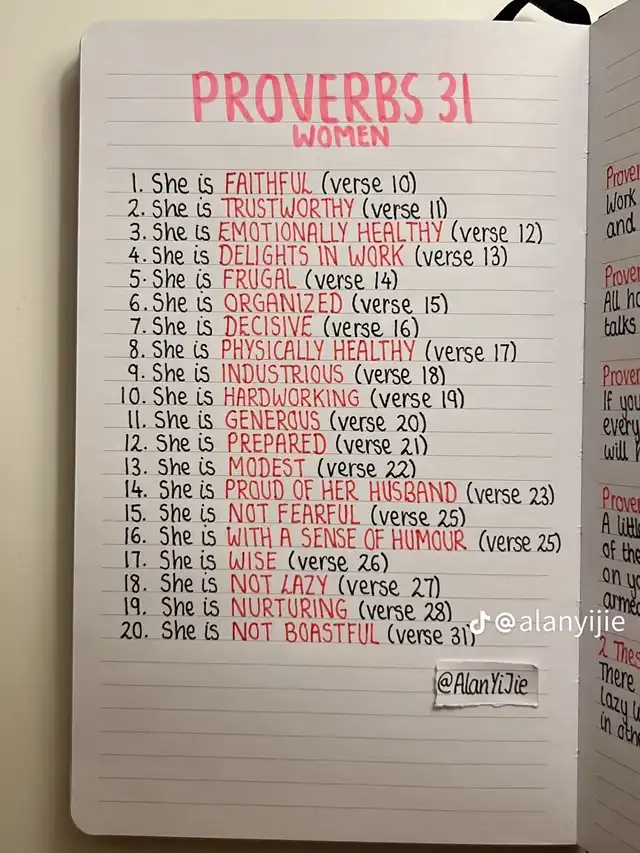 PROVERBS 31
WOMEN
1. She is FAITHFUL (verse 10)
2. She is TRUSTWORTHY (verse 11)
3. She is EMOTIONALLY HEALTHY (verse 12)
4. She is DELIGHTS IN WORK (verse 13)
5. She is FRUGAL (verse 14)
6. She is ORGANIZED (verse 15)
7. She is DECISIVE (verse 16)
8. She is PHYSICALLY HEALTHY (verse 17)
9. She is INDUSTRIOUS (verse 18)
10. She is HARDWORKING (verse 19)
11. She is GENEROUS (verse 20)
12. She is PREPARED (verse 21)
13. She is MODEST (verse 22)
14. She is PROUD OF HER HUSBAND (verse 23)
15. She is NOT FEARFUL (verse 25)
16. She is WITH A SENSE OF HUMOUR (verse 25)
17. She is WISE (verse 26)
18. She is NOT LAZY (verse 27)
19. She is NURTURING (verse 28)
20. She is NOT BOASTFUL (verse 31)
@alanyijie
@AlanYiJie
Work
and
All
talks
If you
every
will
A
of the
on
2 Thes
There
lazy
in